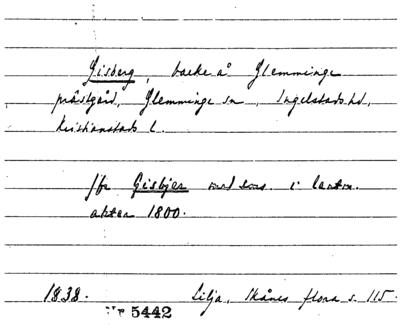 Gisberg, backe å Glemminge
prästgård, Glemminge sn, Ingelstads hd,
Kristianstads l.
Jfr Gisbjer med sms. i lantm.
akter 1800.
1838. Lilja, Skånes flora s. 115.
Nr 5442